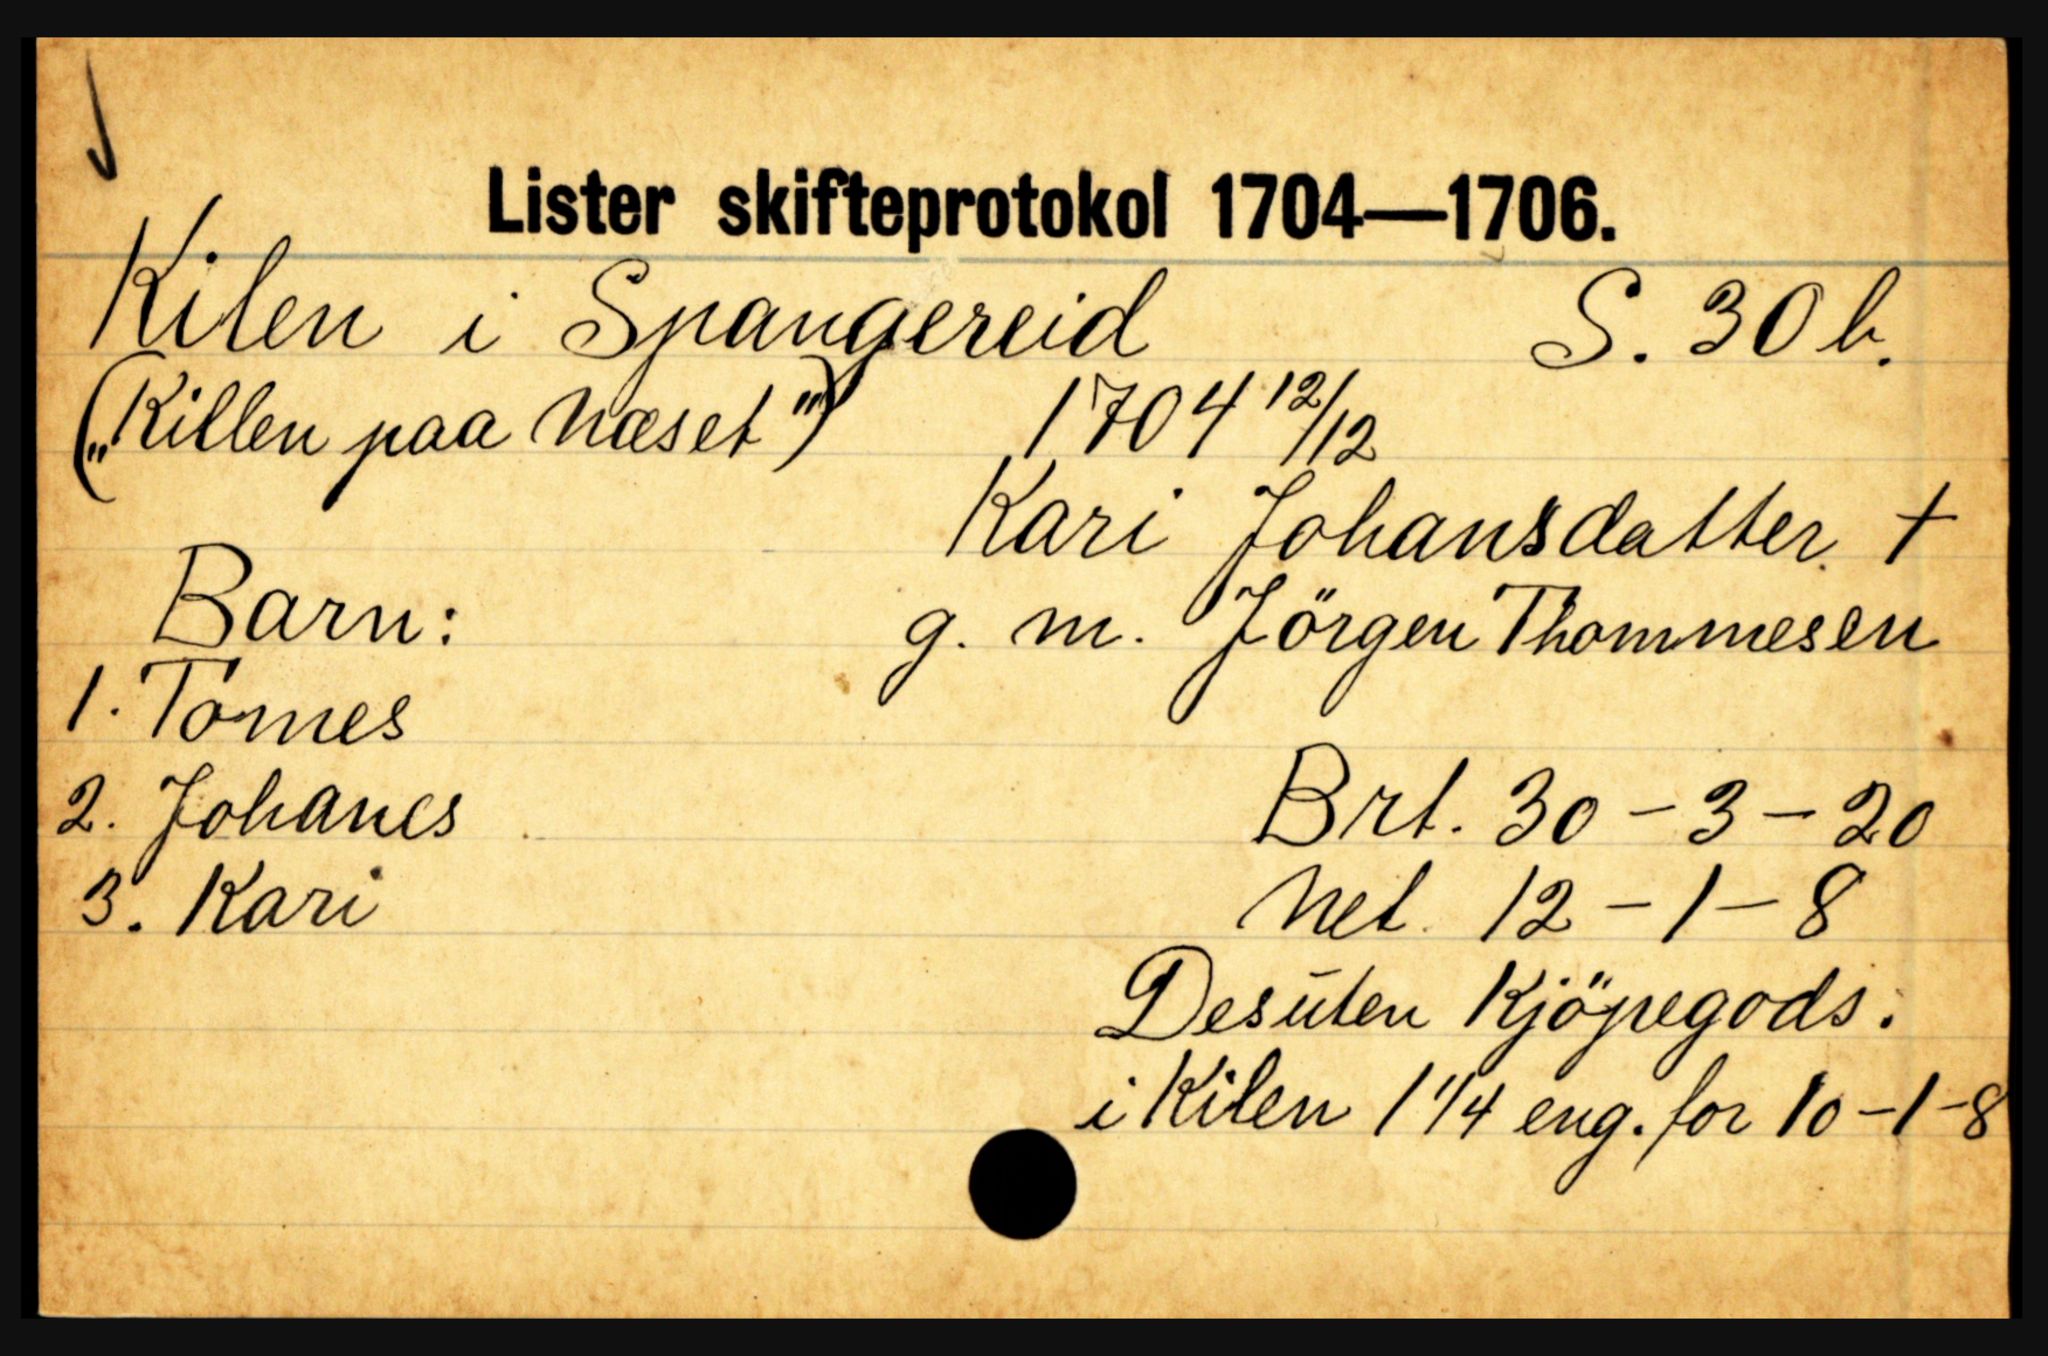 Lister skifteprotokol 1704—1706.
Kilen i Spangereid S. 30 b.
(„Killen paa Næset") 1704 12/12
Kari Johansdatter †
Barn: g. m. Jörgen Thommesen
1. Tomes
2. Johanes Brt. 30 - 3 - 20
3. Kari Net. 12 - 1 - 8
Desuten Kjöpegods:
i Kilen 1 1/4 eng. for 10 - 1 - 8